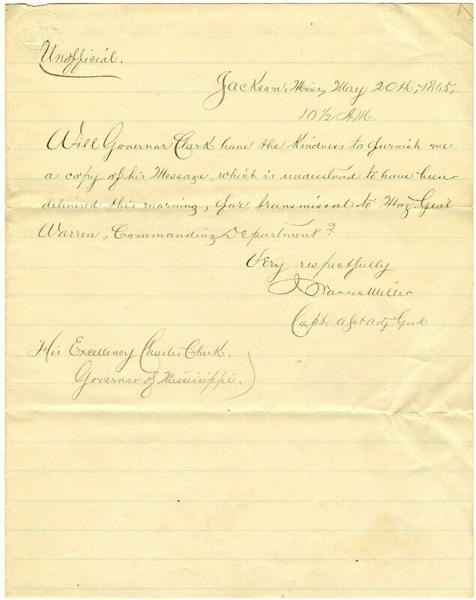 Unofficial.
Jackson, Miss, May 20th, 1865,
10½ A.M.
Will Governor Clark have the Kindness to furnish me
a copy of his Message, which is understood to have been
delivered this morning, for transmissal to Maj. Genl
Warren, Commanding Department?
Very respectfully
J Warren Miller
Capt & Asst Adj Genl
His Excellency Charles Clark,
Governor of Mississippi.